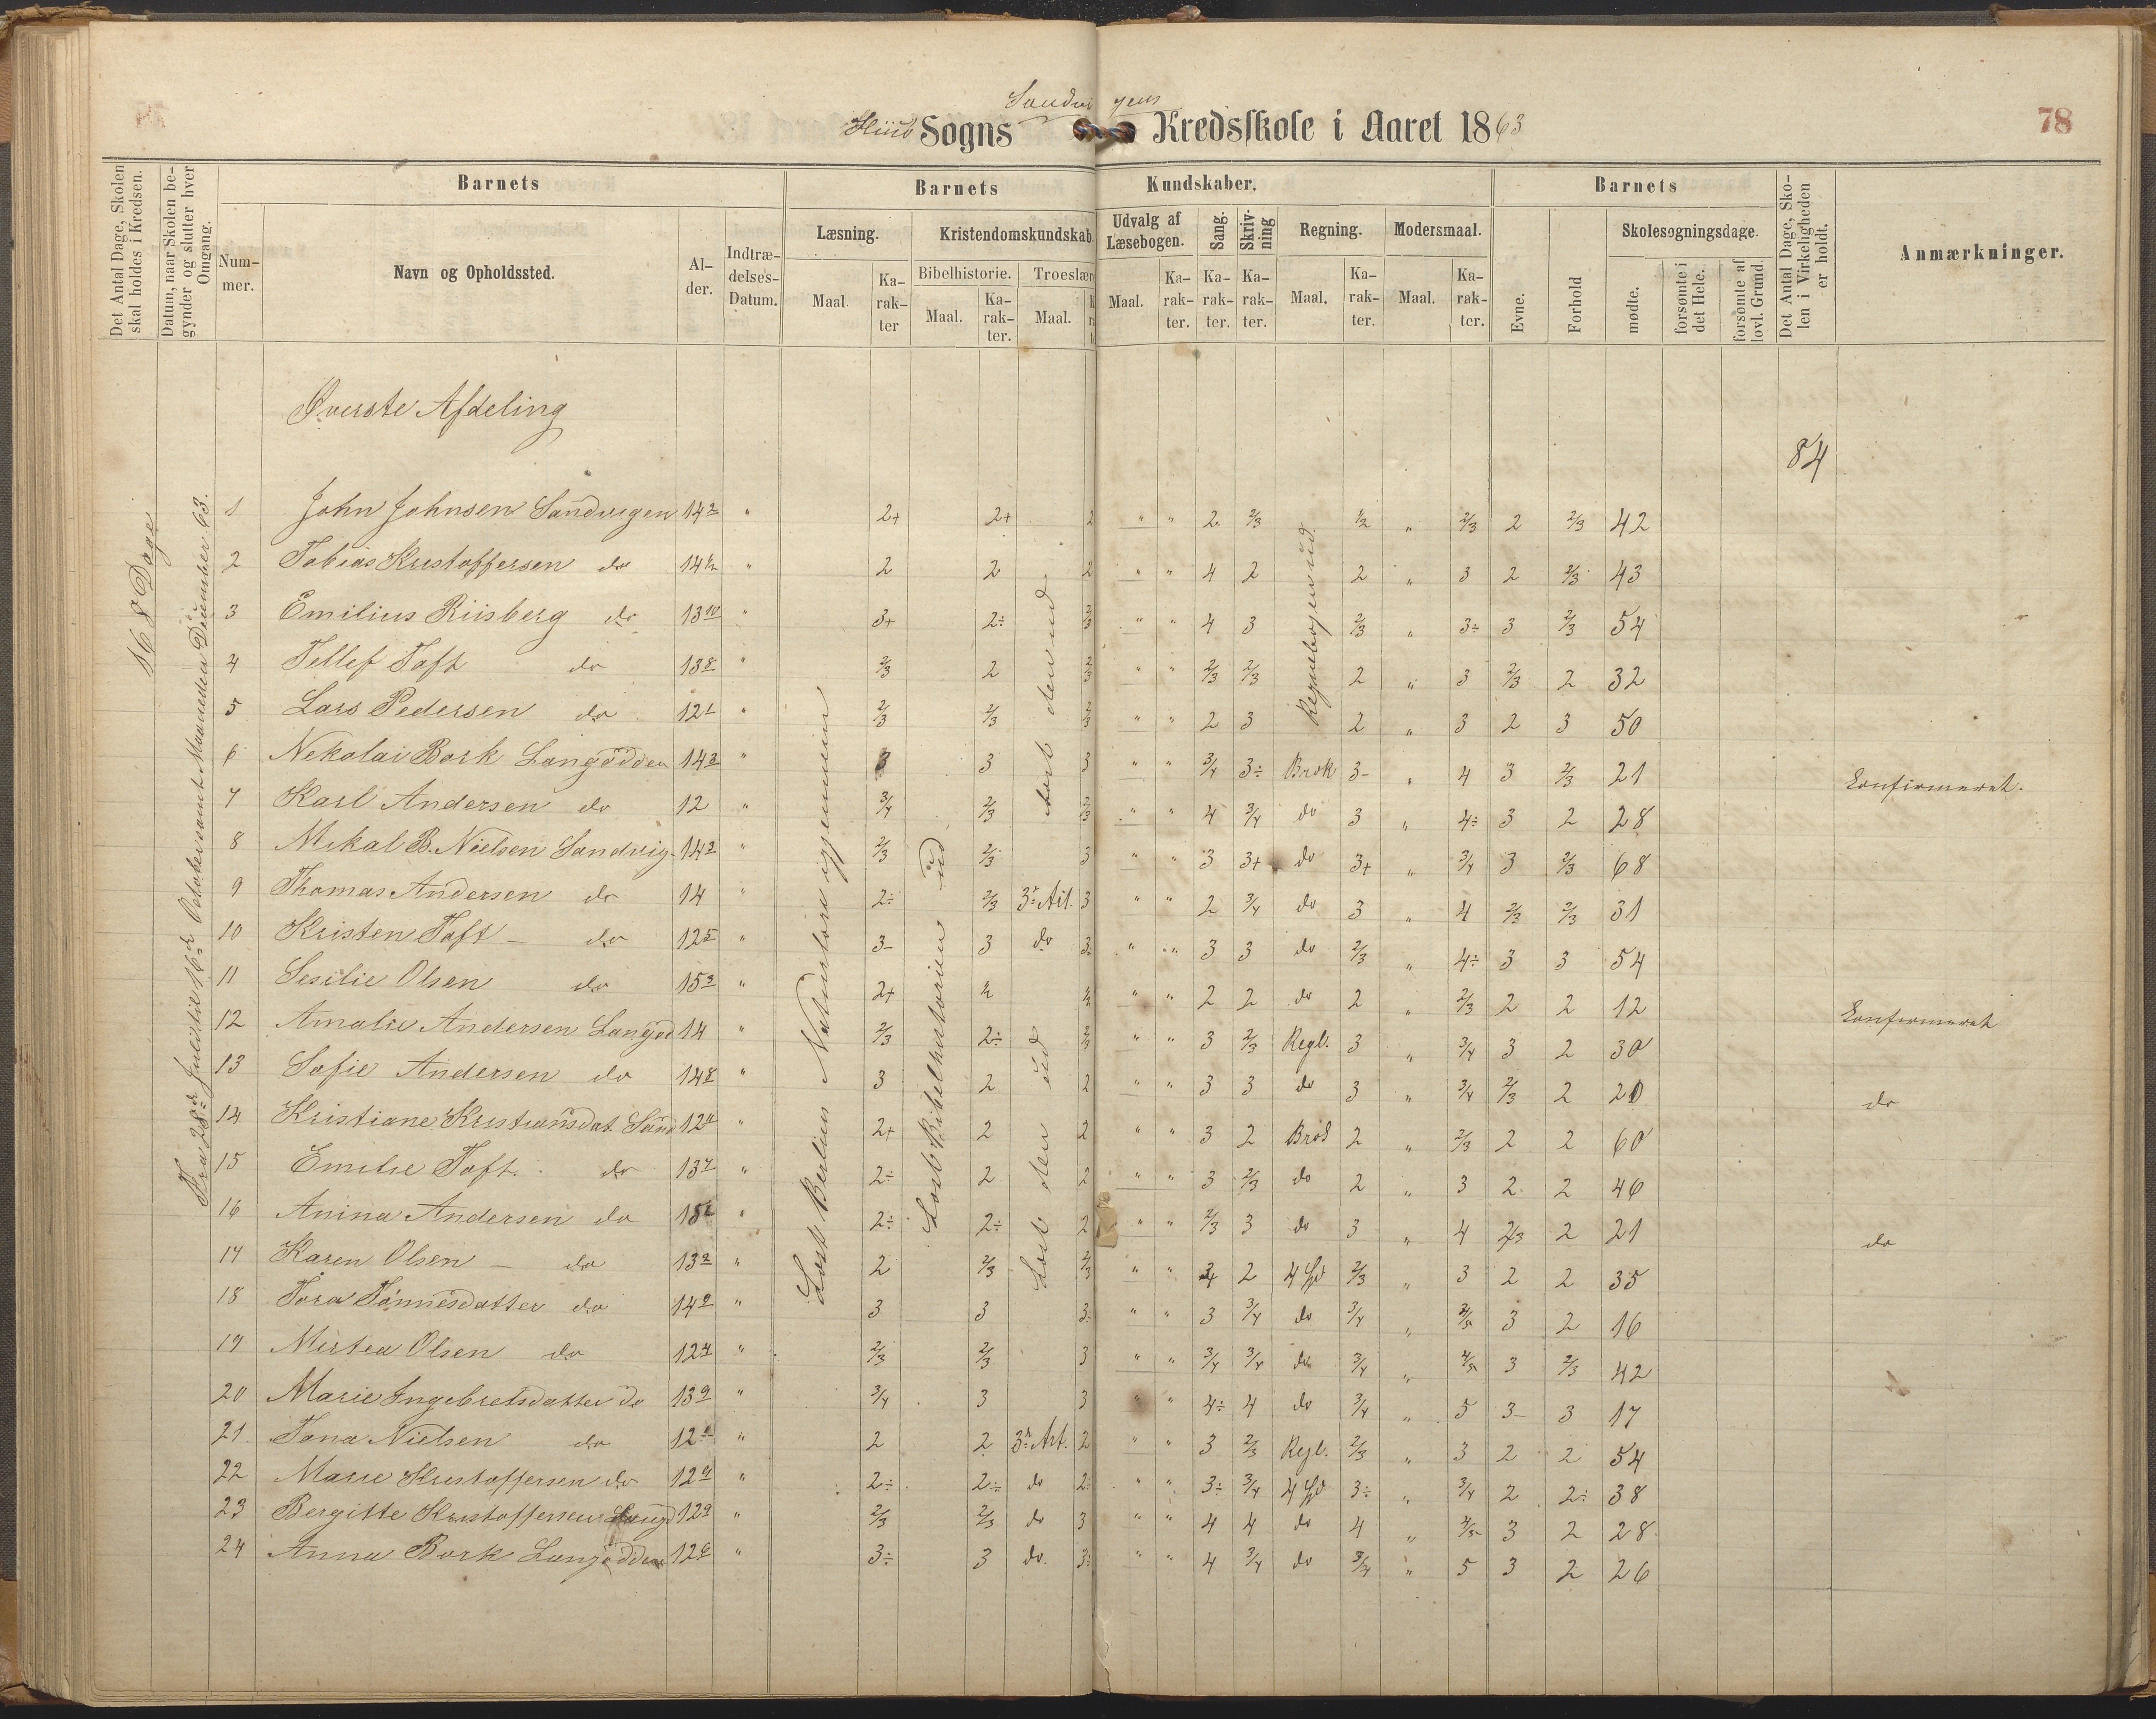 Sandvigens
Hiisø Sogns Kredsskole i Aaret 1863
78
Det Antal Dage, Skolen skal holdes i Kredsen.
Datum, naar Skolen begynder og slutter hver Omgang.
Barnets
Barnets Kundskaber.
Barnets
Det Antal Dage, Skolen i Virkeligheden er holdt.
Anmærkninger.
Nummer.
Navn og Opholdssted.
Alder.
Indtrædelses-Datum.
Læsning.
Kristendomskundskab.
Udvalg af Læsebogen.
Sang.
Skrivning
Regning.
Modersmaal.
Evne.
Forhold
Skolesøgningsdage.
Bibelhistorie.
Troeslære
Maal.
Karakter
Maal.
Karakter.
Maal.
Maal.
Karakter.
Karakter.
Karakter.
Maal.
Karakter.
Maal.
Karakter.
mødte.
forsømte i det Hele.
forsømte af lovl. Grund.
168 Dage
Fra 28de Juli til 16de Octobersamt Maaneden December 63.
Øverste Afdeling
84
Læst Berlins Naturlære igjennem
Læst Bibelhistorien ud
Læst den ud
Læst den ud
Regnebogen ud
1 John Johnsen Sandvigen 14 2 " 2+ 2+ 2 " " 2 2/3 1/2 " 2/3 2 2/3 42
2 Tobias Kristoffersen do 14 1/2 " 2 2 2 " " 4 2 2 " 3 2 2/3 43
3 Emilius Riisberg do 13 10 " 3+ 2÷ 2/3 " " 4 3 2/3 " 3÷ 3 2/3 54
4 Tellef Toft do 13 8 " 2/3 2 2/3 " " 2/3 2/3 2 " 3 2/3 2 32
5 Lars Pedersen do 12 1 " 2/3 2/3 2/3 " " 2 3 2 " 3 2 3 50
6 Nekolai Bork Langødden 14 3 " 3 3 3 " " 3/4 3÷ Brøk 3- " 4 3 2/3 21 Konfirmeret.
7 Karl Andersen do 12 " 3/4 2/3 2/3 " " 4 3/4 do 3 " 4÷ 3 2 28
8 Mikal B. Nielsen Sandvig 14 2 " 2/3 2/3 3 " " 3 3+ do 3+ " 3/4 3 2/3 68
9 Thomas Andersen do 14 " 2÷ 2/3 3die Art. 3 " " 2 3/4 do 3 " 4 2/3 2/3 31
10 Kristen Toft - do 12 5 " 3- 3 do 3 " " 3 3 do 2/3 " 4÷ 3 3 54
11 Sesilie Olsen do 15 3 " 2+ 1/2 1/2 " " 2 2 do 2 " 2/3 2 2 12 Konfirmeret
12 Amalie Andersen Langød 14 " 2/3 2÷ 2/3 " " 3 2/3 Regb. 3 " 3/4 3 2 30
13 Sofie Andersen do 14 8 " 3 2 2 " " 3 3 do 3 " 3/4 2/3 2 20 do
14 Kristiane Kristiansdat. Sand 12 11 " 2+ 2 2 " " 3 2 Brøk 2 " 2/3 2 2 60
15 Emilie Toft. do 13 7 " 2÷ 2 2 " " 3 2/3 do 2 " 3 2 2 46
16 Anina Andersen do 15 2 " 2÷ 2÷ 2 " " 2/3 3 do 3 " 4 2/3 2 21 do
17 Karen Olsen - do 13 2 " 2 2/3 2/3 " " 2 4 Sp 2/3 " 3 2 2 35
18 Tora Tønnesdatter do 14 2 " 3 3 3 " " 3 3/4 do 3/4 " 3 2 16
19 Mirtea Olsen do 12 4 " 2/3 2/3 3 " " 3/4 3/4 do 3/4 " 4/5 3 2/3 42
20 Marie Ingebretsdatter do 13 9 " 3/4 3 3 " " 4÷ 4 do 3/4 " 5 3- 3 17
21 Tona Nielsen do 12 " 2 2 3die Art. 2 " " 3 2/3 Regb. 2/3 " 3 2 2 54
22 Marie Kristoffersen do 12 9 " 2÷ 2÷ do 2÷ " " 3÷ 3/4 4 Sp 3÷ " 3/4 2 2÷ 38
23 Bergitte Kristoffersen Langø 12 9 " 2/3 2/3 do 3 " " 4 4 do 4 " 4/5 3 2 28
24 Anna Bork Langødden 12 6 " 3÷ 3 do. 3÷ " " 4 3/4 do 3/4 " 5 3 2 26